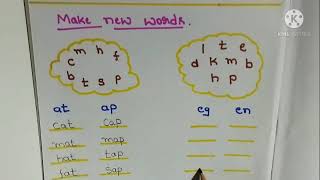 Make new words.
m h f
c
b t s p
l t e
d k m b
h p
at ap eg en
cat cap
mat map
hat tap
fat sap